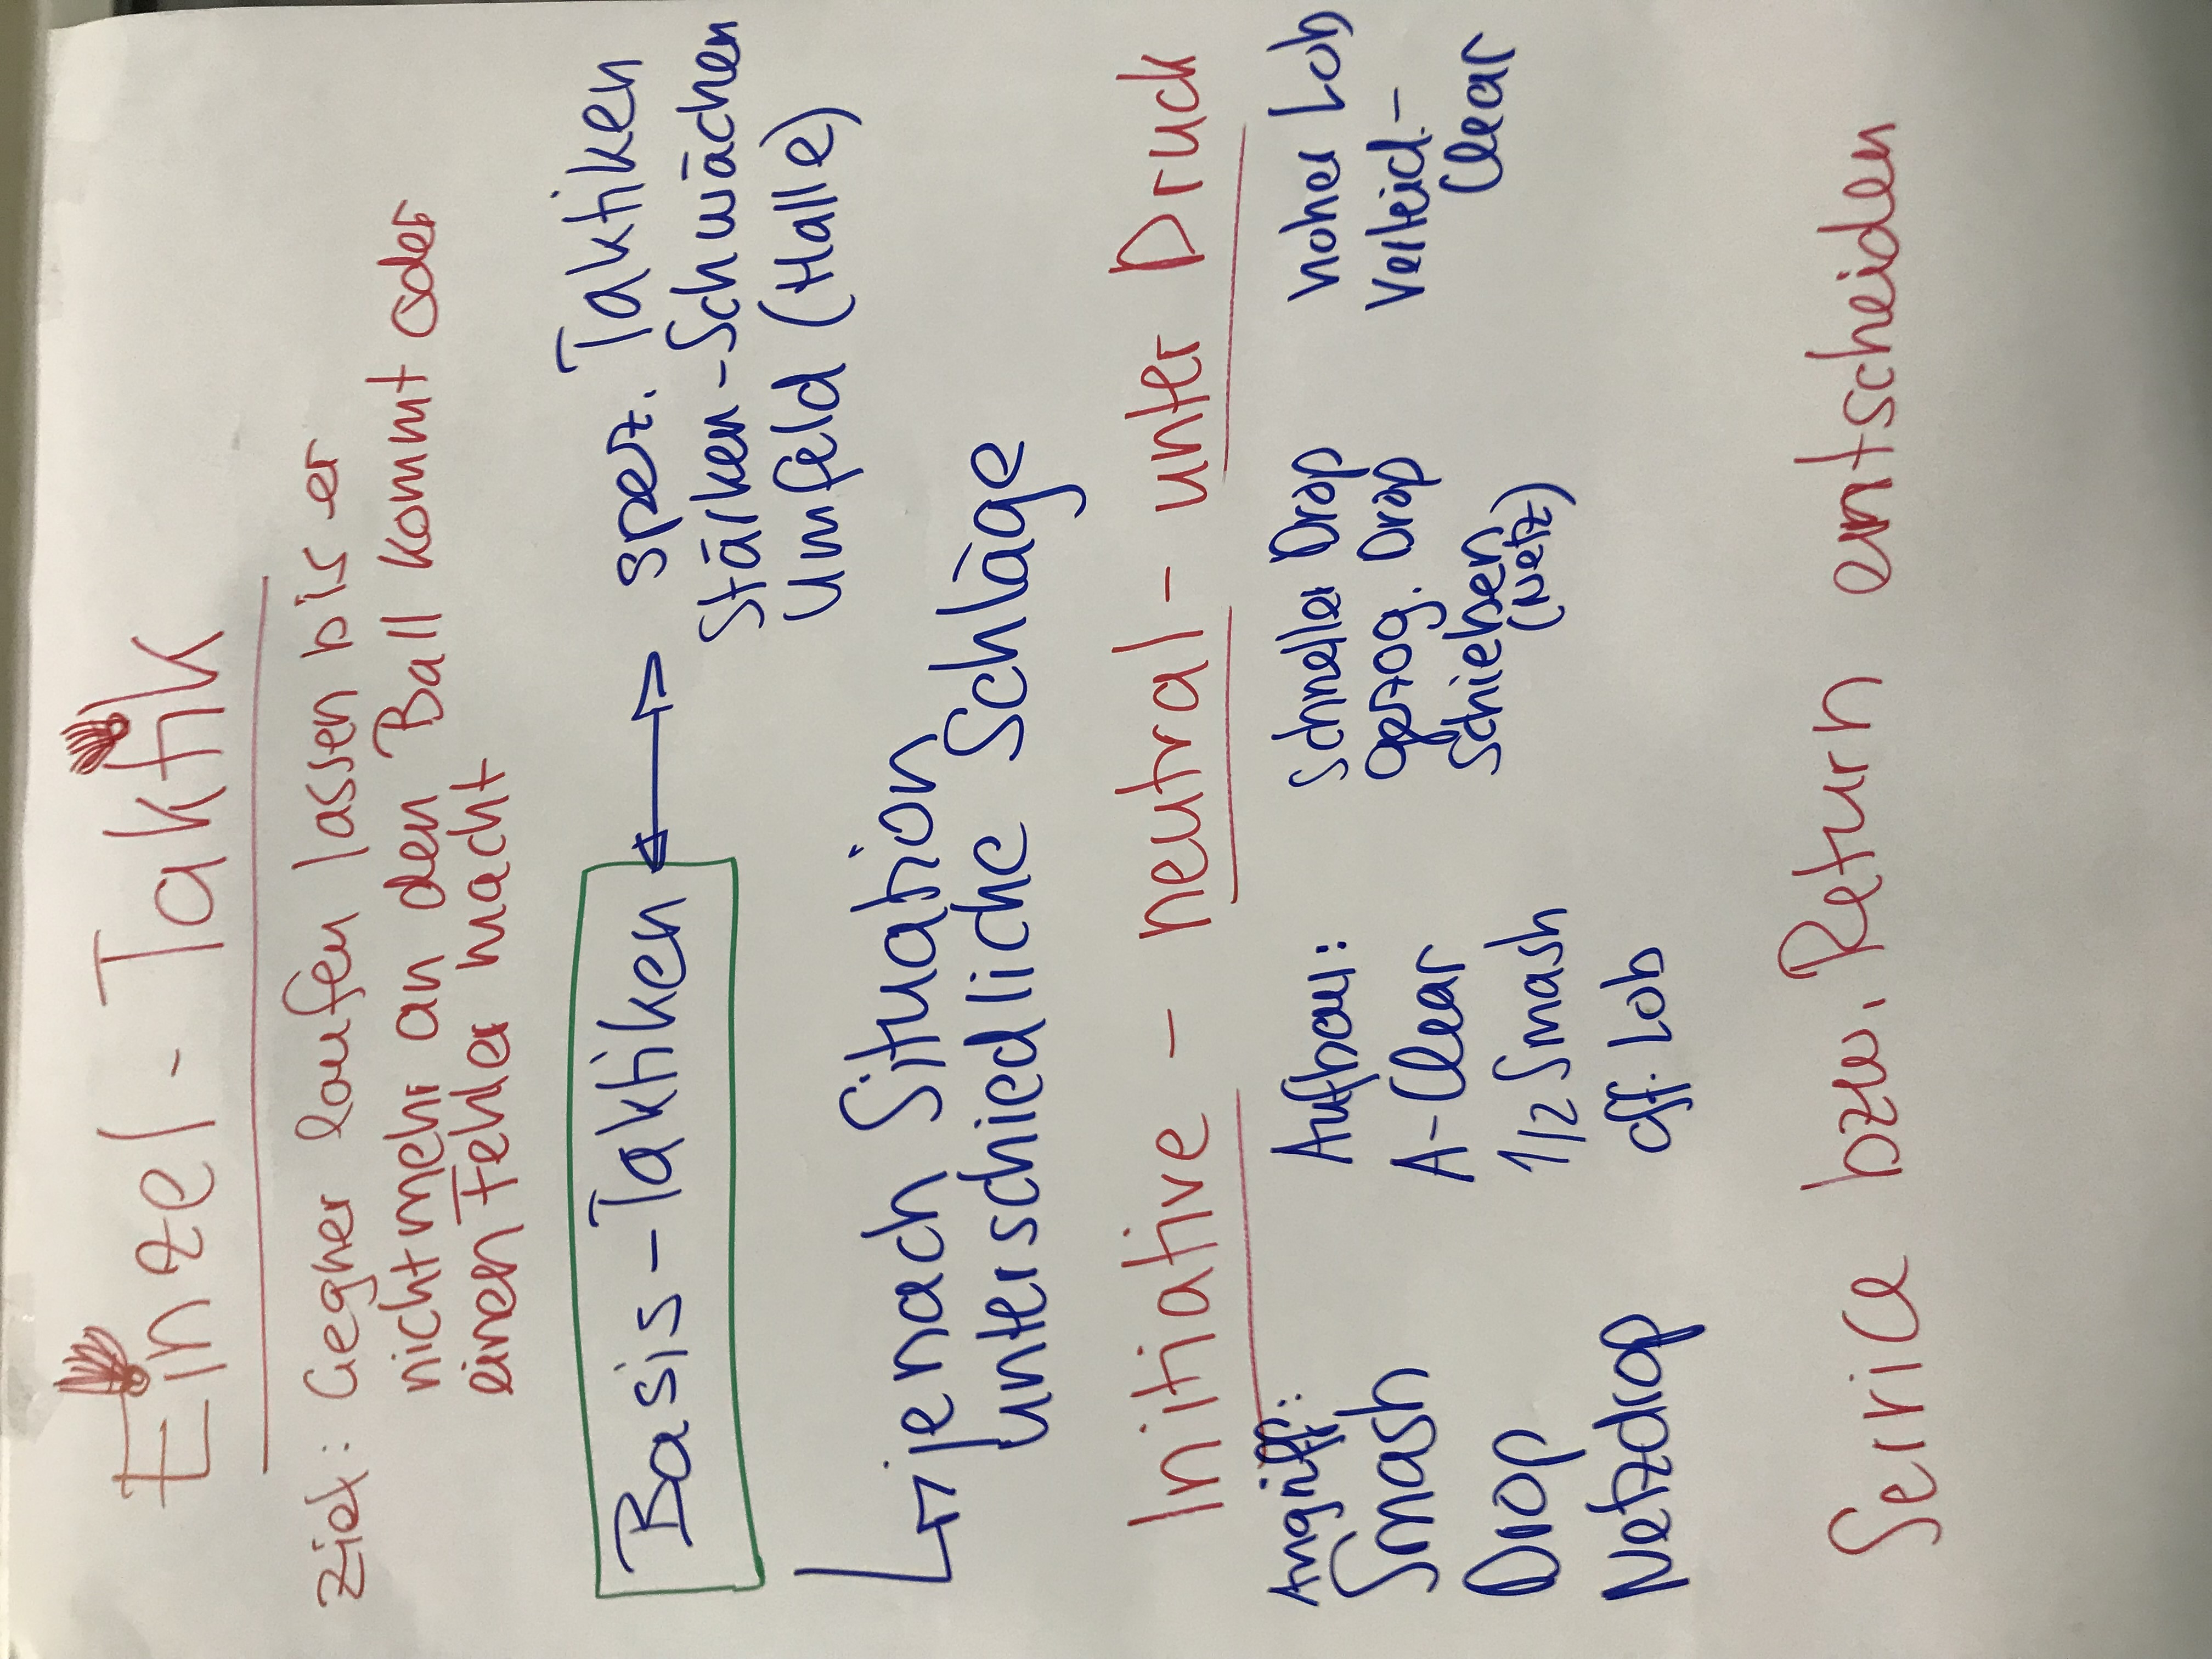 Einzel - Taktik
Ziel: Gegner laufen lassen bis er
nicht mehr an den Ball kommt oder
einen Fehler macht
Basis - Taktiken
spez. Taktiken
Stärken - Schwächen
Umfeld (Halle)
je nach Situation
unterschiedliche Schläge
Initiative - neutral - unter Druck
Angriff:
Smash
Drop
Netzdrop
Aufbau:
A-Clear
1/2 Smash
off. Lob
Schneller Drop
gezog. Drop
schieben
(Netz)
hoher Lob
Verteid.-
Clear
Service bzw. Return entscheiden